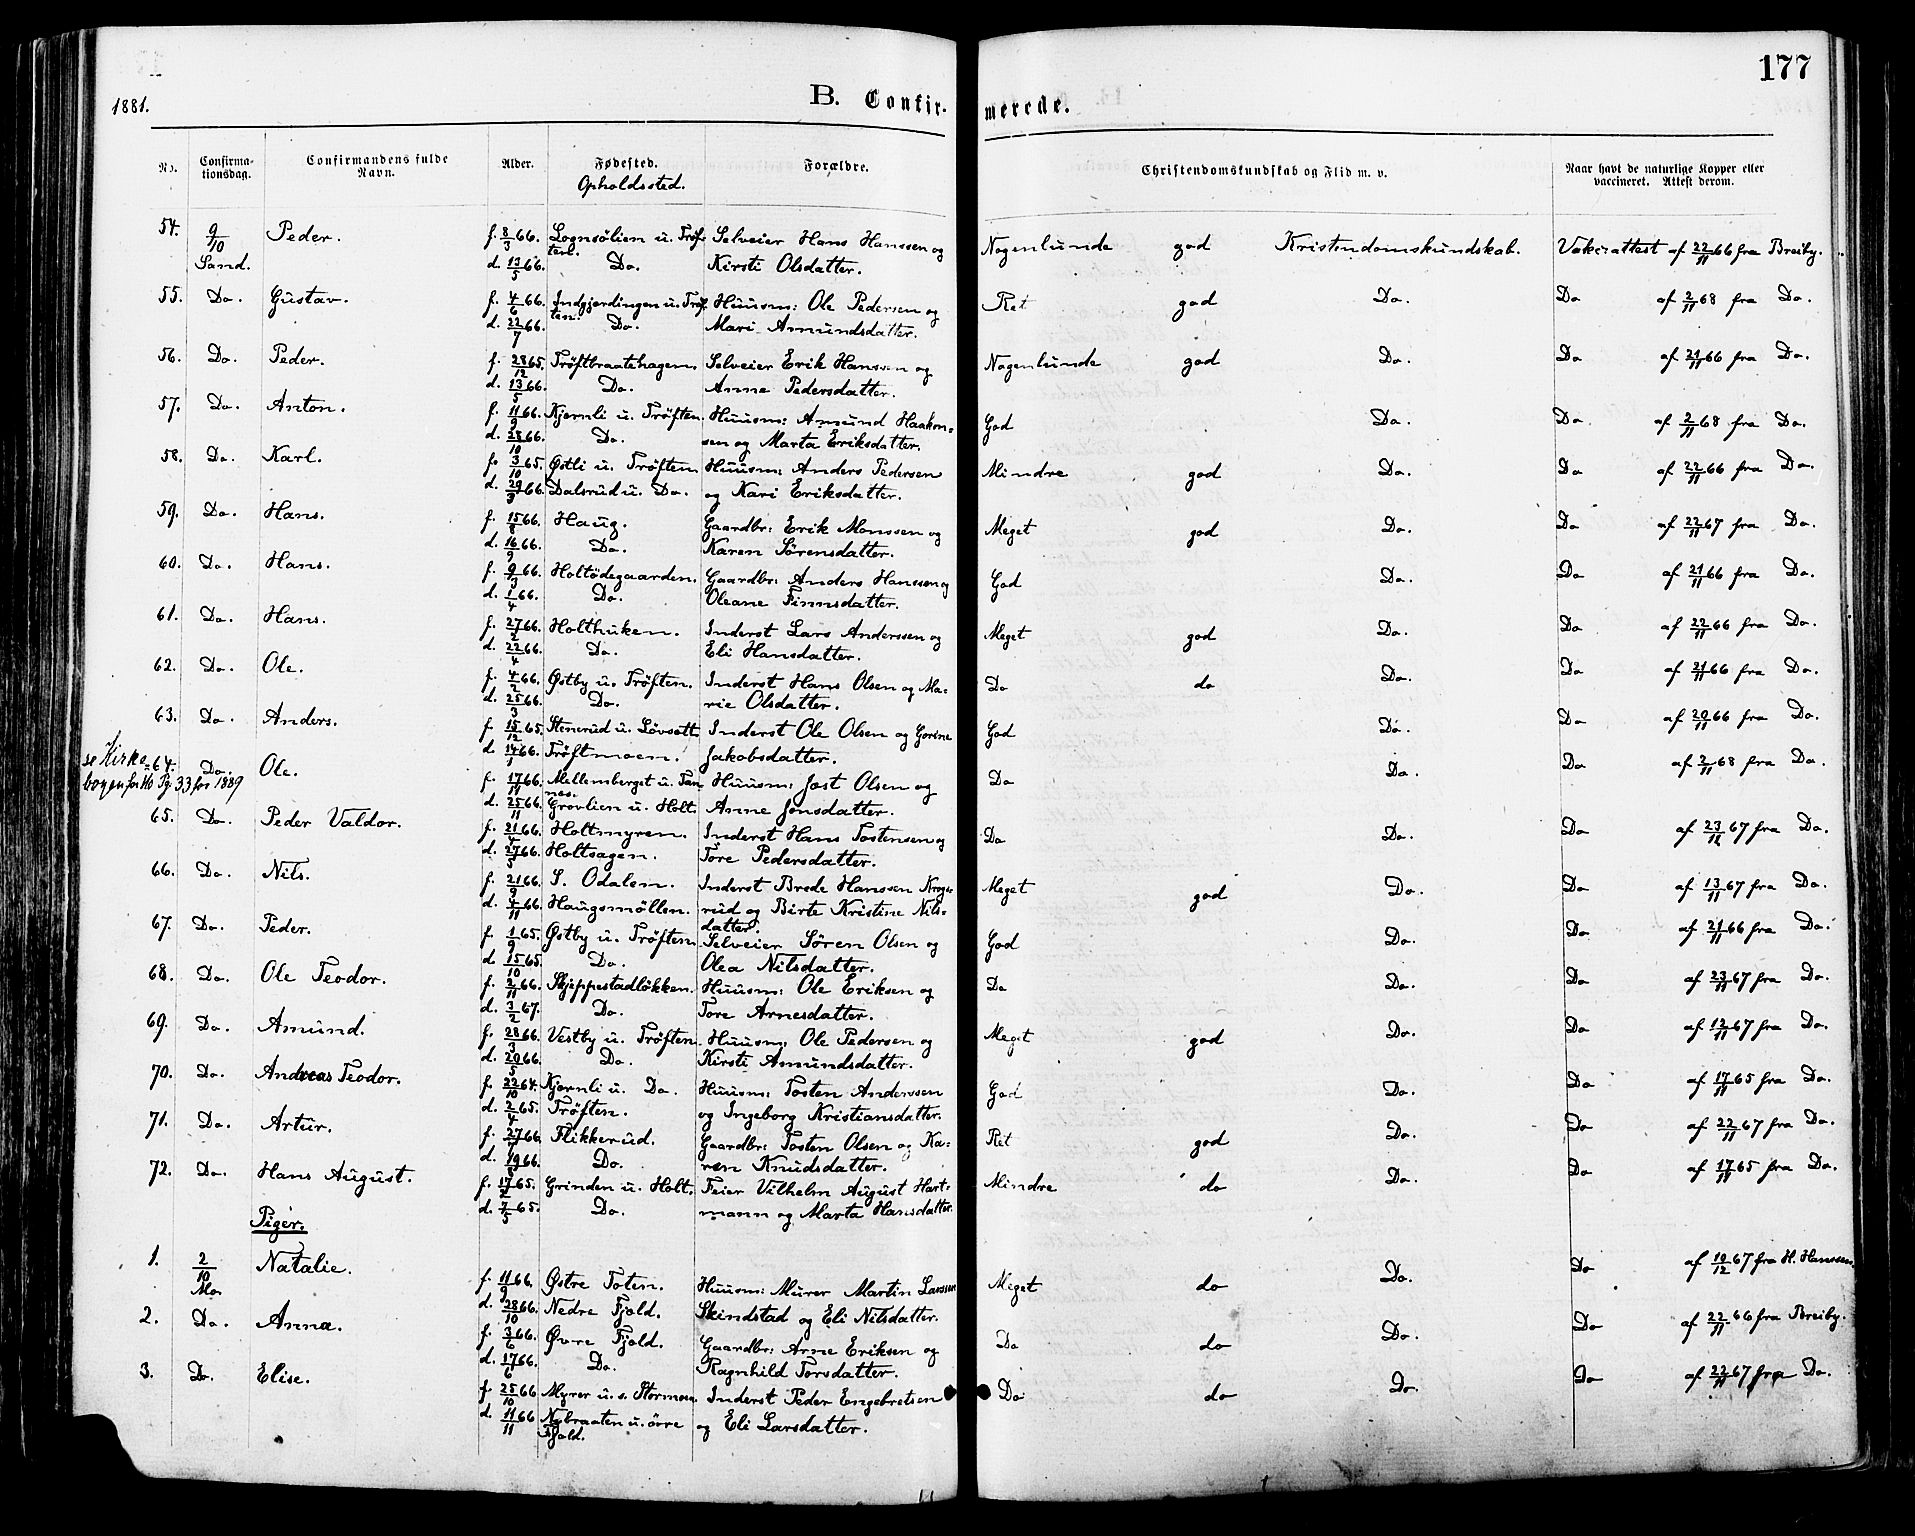 177
1881.
B. Confirmerede.
No. Confirmationsdag. Confirmandens fulde Navn. Alder. Fødested. Opholdssted. Forældre. Christendomskundskab og Flid m. v. Naar havt de naturlige Kopper eller vaccineret. Attest derom.
54. 9/10 Sand. Peder. f. 8/3 66. Lognsölien u. Tröften. Selveier Hans Hanssen og Nogenlunde god Kristendomskundskab. Vakc:attest af 22/11 66 fra Breiby.
d. 13/5 66. Do. Kirsti Olsdatter.
55. Do. Gustav. f. 4/6 66. Indgjerdingen u. Tröften. Huusm: Ole Pedersen og Ret god Do. Do af 2/11 68 fra Do.
d. 22/7 66. Do. Mari Amundsdatter.
56. Do. Peder. f. 28/12 65. Tröftbraatehagen. Selveier Erik Hanssen og Nogenlunde god Do. Do af 21/11 66 fra Do.
d. 13/5 66. Do. Anne Pedersdatter.
57. Do. Anton. f. 11/9 66. Kjernli u. Tröften. Huusm: Amund Haakon- God Do. Do. af 2/11 68 fra Do.
d. 28/10 66. Do. sen og Marta Eriksdatter.
58. Do. Karl. f. 3/10 65. Østli u. Tröften. Huusm: Anders Pedersen Mindre god Do. Do af 22/11 66 fra Do.
d. 29/3 66. Dalsrud u. Do. og Kari Eriksdatter.
59. Do. Hans. f. 15/8 66. Haug. Gaardbr: Erik Monssen og Meget god Do. Do af 22/11 67 fra Do.
d. 16/9 66. Do. Karen Sörensdatter.
60. Do. Hans. f. 9/3 66. Holtödegaarden. Gaardbr: Anders Hanssen og God Do. Do af 21/11 66 fra Do.
d. 1/4 66. Do. Oleane Finnsdatter.
61. Do. Hans. f. 27/2 66. Holthuken. Inderst Lars Anderssen og Meget god Do. Do af 22/11 66 fra Do.
d. 22/4 66. Do. Eli Hansdatter.
62. Do. Ole. f. 4/2 66. Østby u. Tröften. Inderst Hans Olsen og Ma- Do do Do. Do af 21/11 66 fra Do.
d. 25/3 66. Do. rie Olsdatter.
63. Do. Anders. f. 15/12 65. Stenerud u. Lövsett. Inderst Ole Olsen og Gorine God Do. Do af 20/11 66 fra Do.
d. 14/1 66. Tröftmoen. Jakobsdatter.
se Kirke-
bogen for Ho Pg. 33 for 1889
64. Do. Ole. f. 17/11 66. Mellemberget u. Huusm: Jost Olsen og Do Do. Do af 2/11 68 fra Do.
d. 25/11 66. Grovlien u. Holt. Anne Jonsdatter.
65. Do. Peder Valdor. f. 21/4 66. Holtmyren. Inderst Hans Tostensen og Do Do. Do af 23/11 67 fra Do.
d. 27/5 66. Holtsagen. Tore Pedersdatter.
66. Do. Nils. f. 21/9 66. S. Odalen. Inderst Brede Hanssen Meget god Do. Do af 13/11 67 fra Do.
d. 4/11 66. Haugsmöllen. rud og Birte Kristine Nils-
datter.
67. Do. Peder. f. 1/9 65. Østby u. Tröften. Selveier Sören Olsen og God Do. Do. af 21/11 66 fra Do.
d. 15/10 65. Do. Olea Nilsdatter.
68. Do. Ole Teodor. f. 2/11 66. Skjeppestadlökken. Huusm: Ole Eriksen og Do Do. Do af 23/11 67 fra Do.
d. 3/2 67. Do. Tore Arnesdatter.
69. Do. Amund. f. 28/3 66. Vestby u. Tröften. Huusm: Ole Pedersen og Meget god Do. Do af 12/11 67 fra Do.
d. 20/5 66. Do. Kirsti Amundsdatter.
70. Do. Andreas Teodor. f. 22/10 64. Kjernli u. Do. Huusm: Tosten Anderssen God Do. Do af 17/11 65 fra Do.
d. 2/4 65. Tröften. og Ingeborg Kristiansdatter.
71. Do. Artur. f. 27/7 66. Flikkerud. Gaardbr: Tosten Olsen og Ka- Ret god Do. Do af 22/11 67 fra Do.
d. 19/8 66. Do. ren Knudsdatter.
72. Do. Hans August. f. 17/2 65. Grinden u. Holt. Feier Vilhelm August Hart- Mindre do Do. Do af 17/11 65 fra Do.
d. 7/5 65. Do. mann og Marta Hansdatter.
Piger.
1. 2/10 Mo. Natalie. f. 11/9 66. Østre Toten. Huusm: Murer Martin Larssen Meget do Do. Do af 10/12 67 fra H. Hanssen.
d. 28/10 66. Nedre Fjeld. Skindstad og Eli Nilsdatter.
2. Do. Anna. f. 3/6 66. Øvre Fjeld. Gaardbr: Arne Eriksen og Do do Do. Do af 22/11 66 fra Breiby.
d. 17/6 66. Do. Ragnhild Torsdatter.
3. Do. Elise. f. 25/10 66. Myrer u. s. Stormoen Inderst Peder Engebretsen Do do Do. Do af 22/11 67 fra Do.
d. 11/11 66 Nybraaten u. övre Fjeld. og Eli Larsdatter.